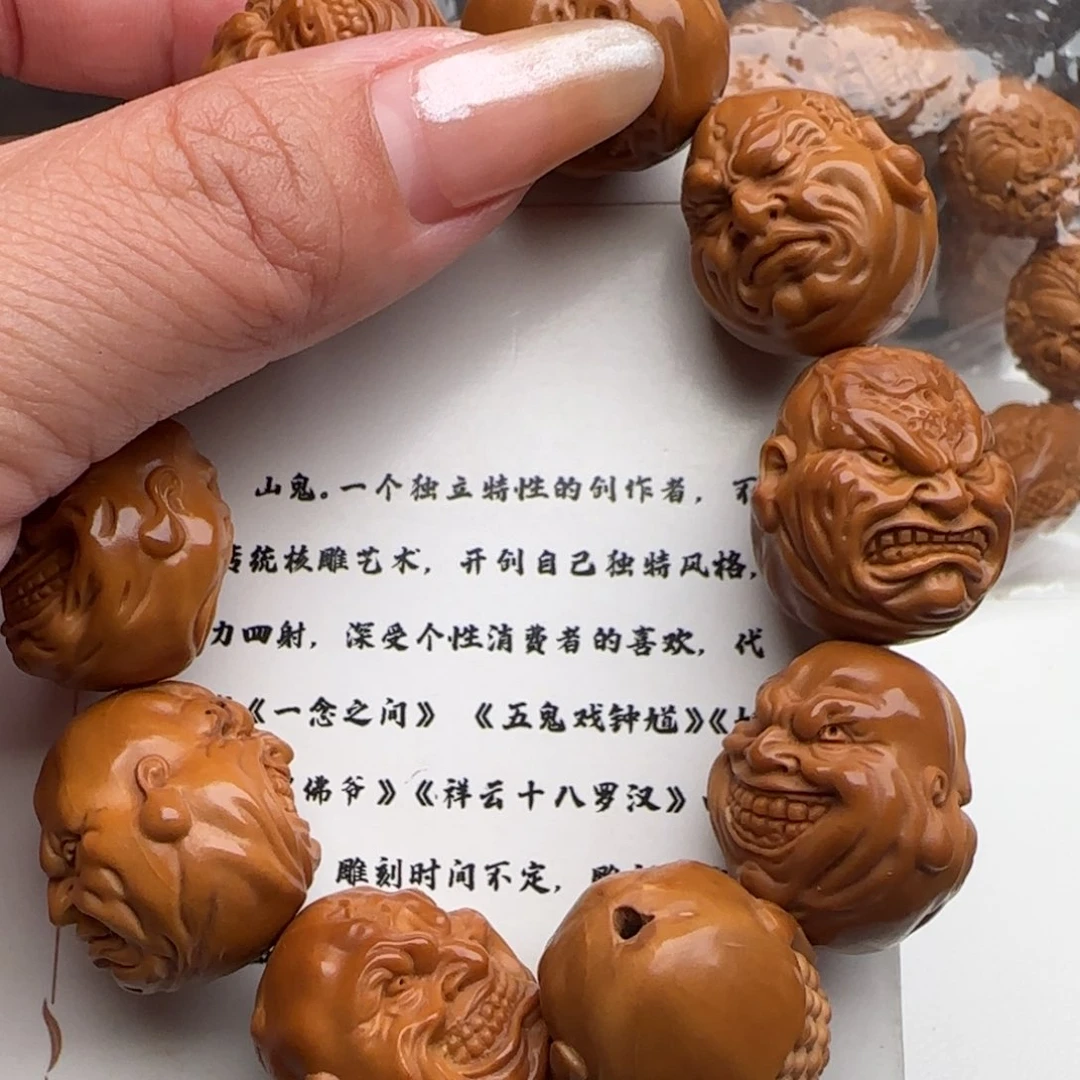 山鬼。一个独立特性的创作者，不
传统核雕艺术，开创自己独特风格，
力四射，深受个性消费者的喜欢，代
《一念之间》《五鬼戏钟馗》《
佛爷》《祥云十八罗汉》
雕刻时间不定，